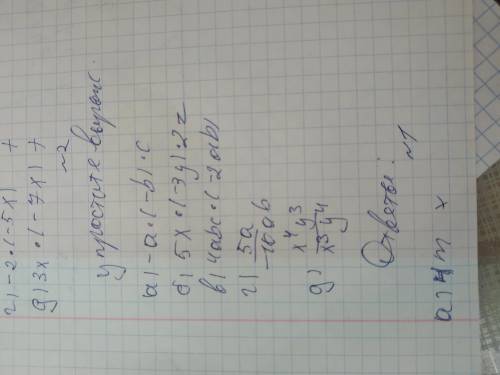 г) -2·(-5x) +
д) 3x·(-7x) +
~2
упростите выраж.
а) -a·(-b)·c
б) 5x·(-3y)·2z
в) 4abc·(-2ab)
г) 5a/-10ab
д) x⁴y³/x³y⁴
Ответы:
~1
а) 4m +